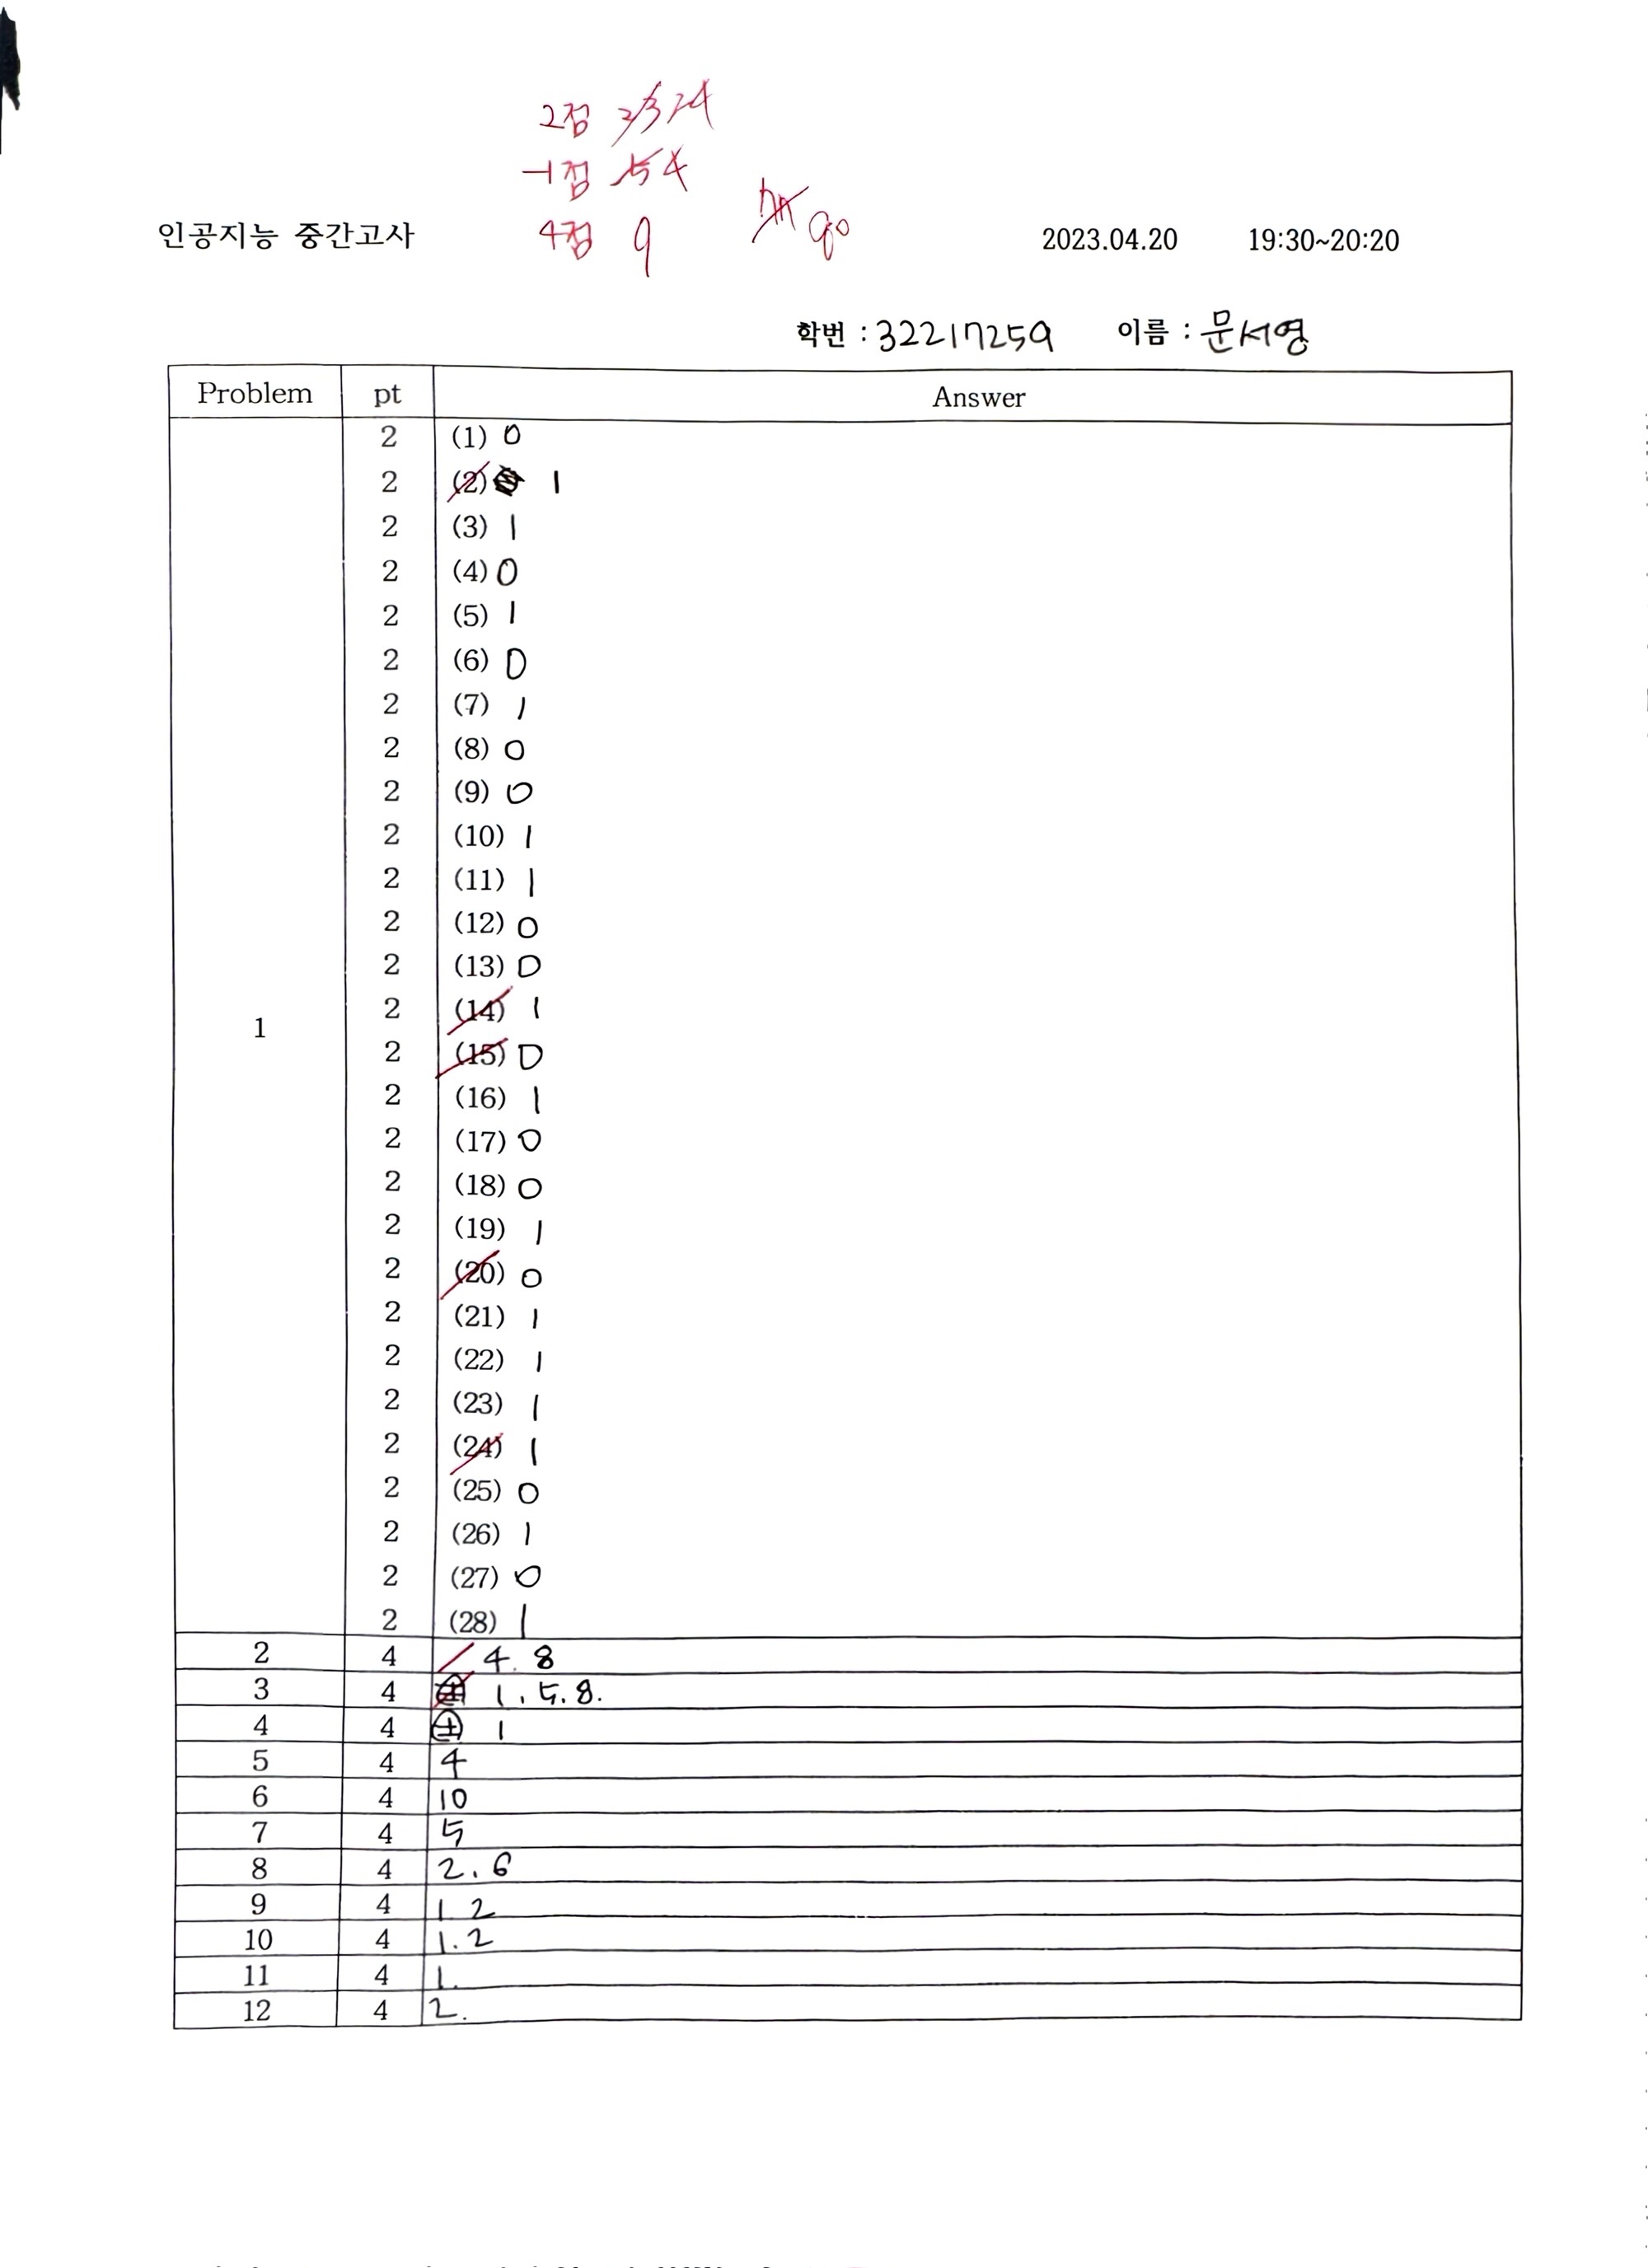 2점 23 24
-1점 5 4
4점 9
90
인공지능 중간고사 2023.04.20 19:30~20:20
학번 : 32217259 이름 : 문서영
Problem pt Answer
2 (1) 0
2 (2) 1
2 (3) 1
2 (4) 0
2 (5) 1
2 (6) 0
2 (7) 1
2 (8) 0
2 (9) 0
2 (10) 1
2 (11) 1
2 (12) 0
2 (13) 0
2 (14) 1
1
2 (15) 0
2 (16) 1
2 (17) 0
2 (18) 0
2 (19) 1
2 (20) 0
2 (21) 1
2 (22) 1
2 (23) 1
2 (24) 1
2 (25) 0
2 (26) 1
2 (27) 0
2 (28) 1
2 4 4. 8
3 4 1. 5. 8.
4 4 1
5 4 4
6 4 10
7 4 5
8 4 2. 6
9 4 1 2
10 4 1. 2
11 4 1.
12 4 2.